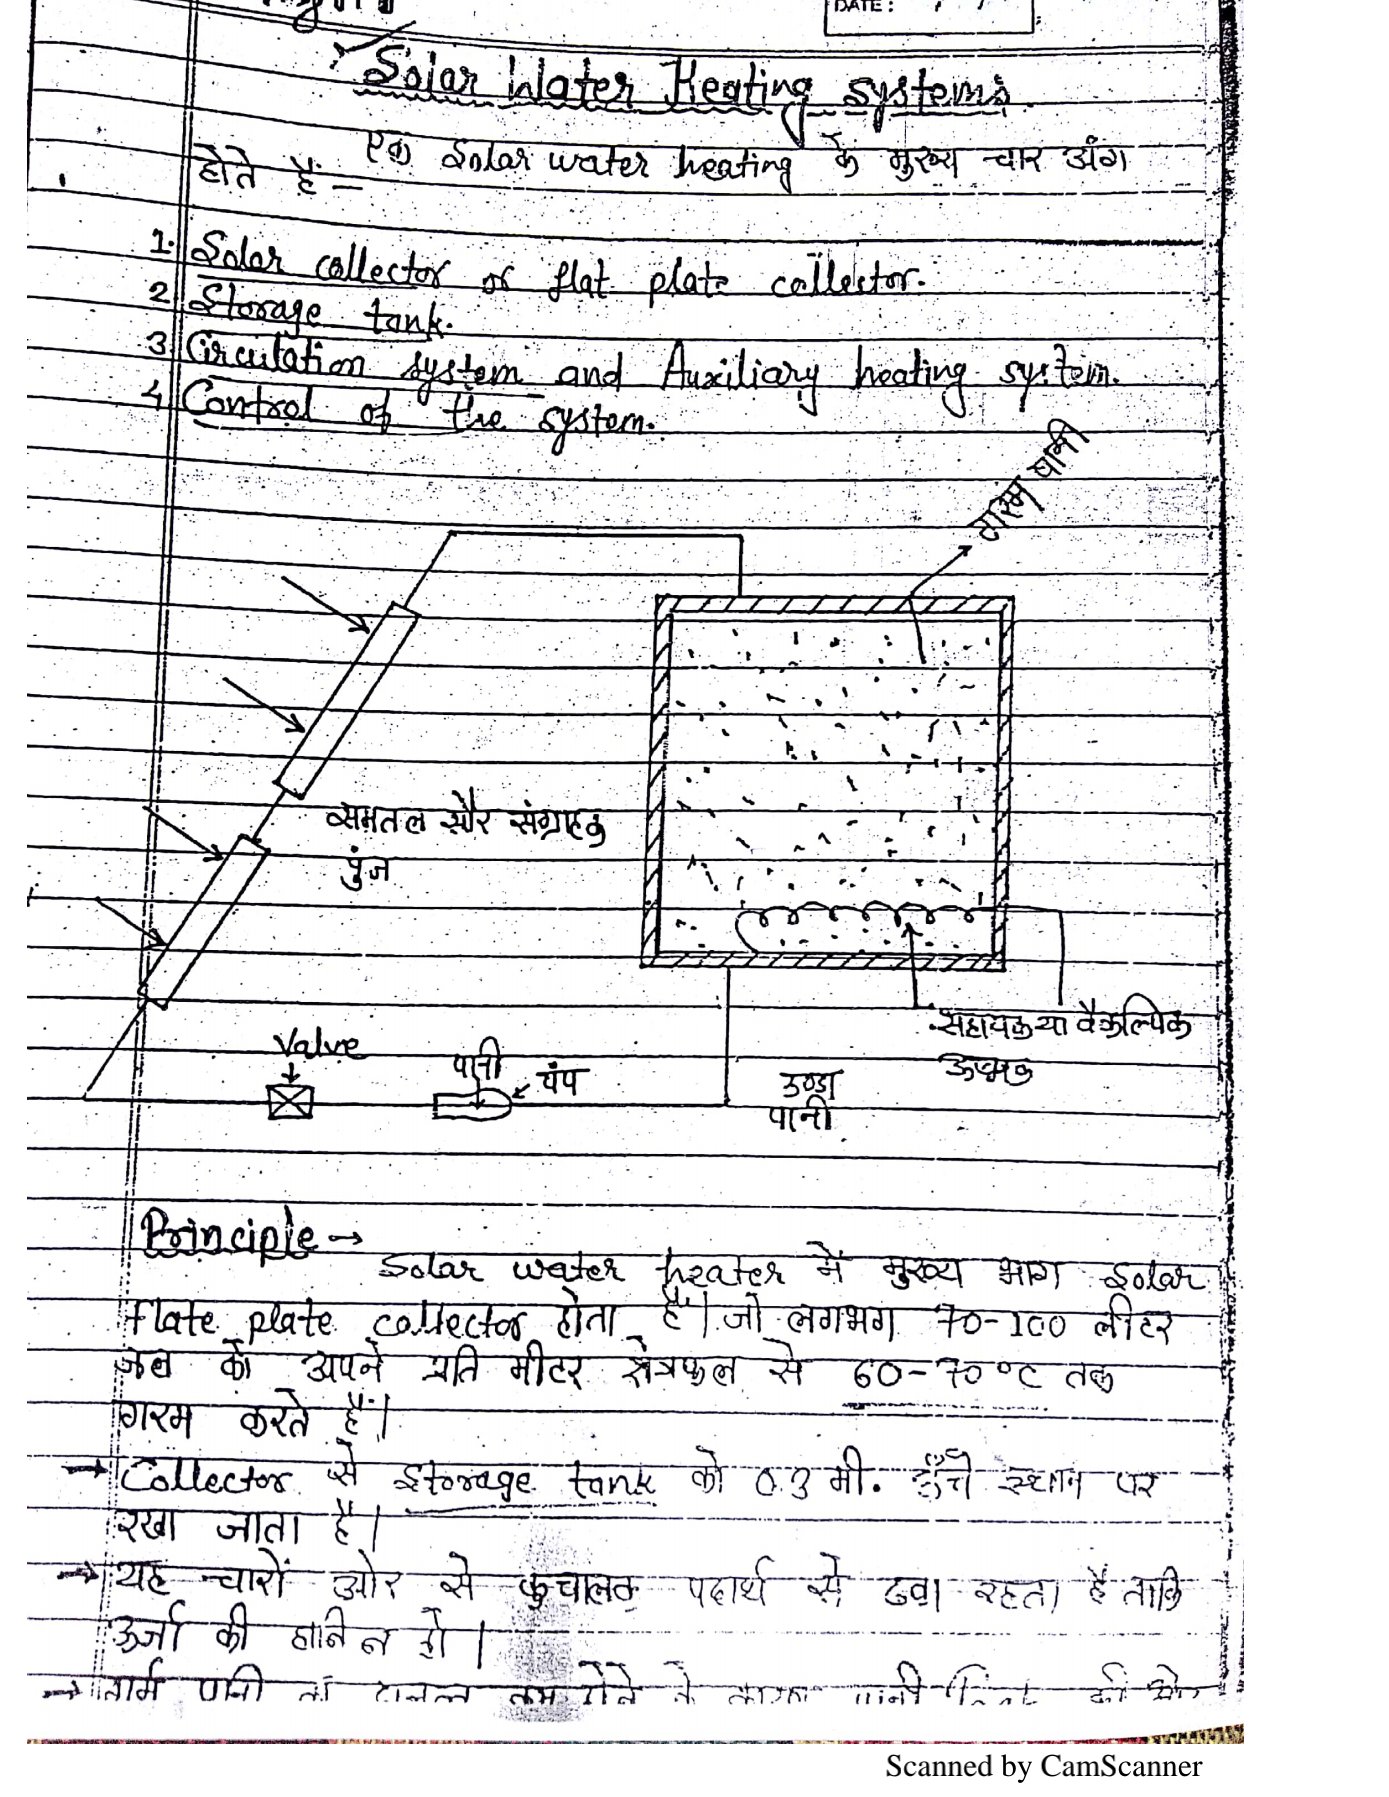 DATE :
Solar Water Heating systems
एक Solar water heating के मुख्य चार अंग
होते हैं -
1. Solar collector or flat plate collector.
2. Storage tank.
3. Circulation system and Auxiliary heating system.
4. Control of the system.
गरम पानी
समतल सौर संग्राहक
पुंज
सहायक या वैकल्पिक
ऊष्मक
Valve
पानी
पंप
ठण्डा
पानी
Principle →
Solar water heater में मुख्य भाग Solar
flate plate collector होता है। जो लगभग 70-100 लीटर
जल को अपने प्रति मीटर क्षेत्रफल से 60-70°C तक
गरम करते हैं।
→ Collector से Storage tank को 0.3 मी. ऊँचे स्थान पर
रखा जाता है।
→ यह चारों ओर से कुचालक पदार्थ से ढका रहता है ताकि
ऊर्जा की हानि न हो।
→ पानी
Scanned by CamScanner